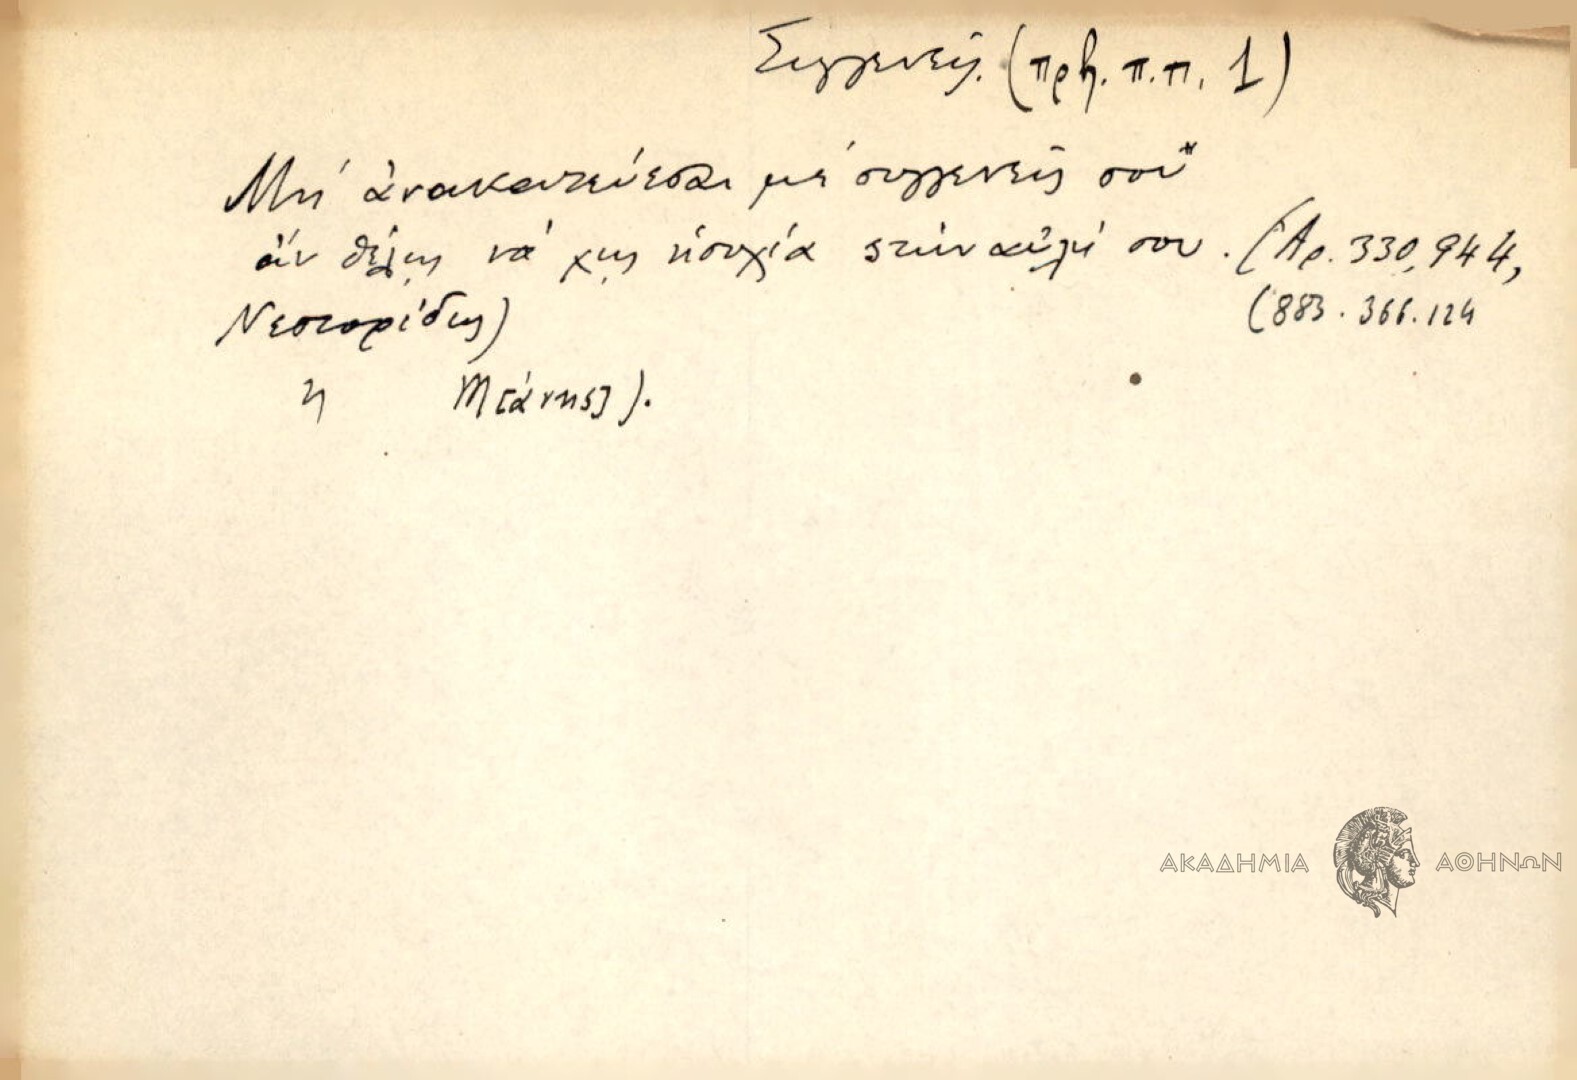 Συγγενεῖς. (πρβ. π.π. 1)
Μὴ ἀνακατεύεσαι μὲ συγγενεῖς σου
ἄν θέλῃς νά χῃς ἡσυχία στὴν αὐλή σου. (Ἀρ. 330, 944,
Νεστορίδης) (883. 366. 124
η Μ[άνης]).
ΑΚΑΔΗΜΙΑ ΑΘΗΝΩΝ